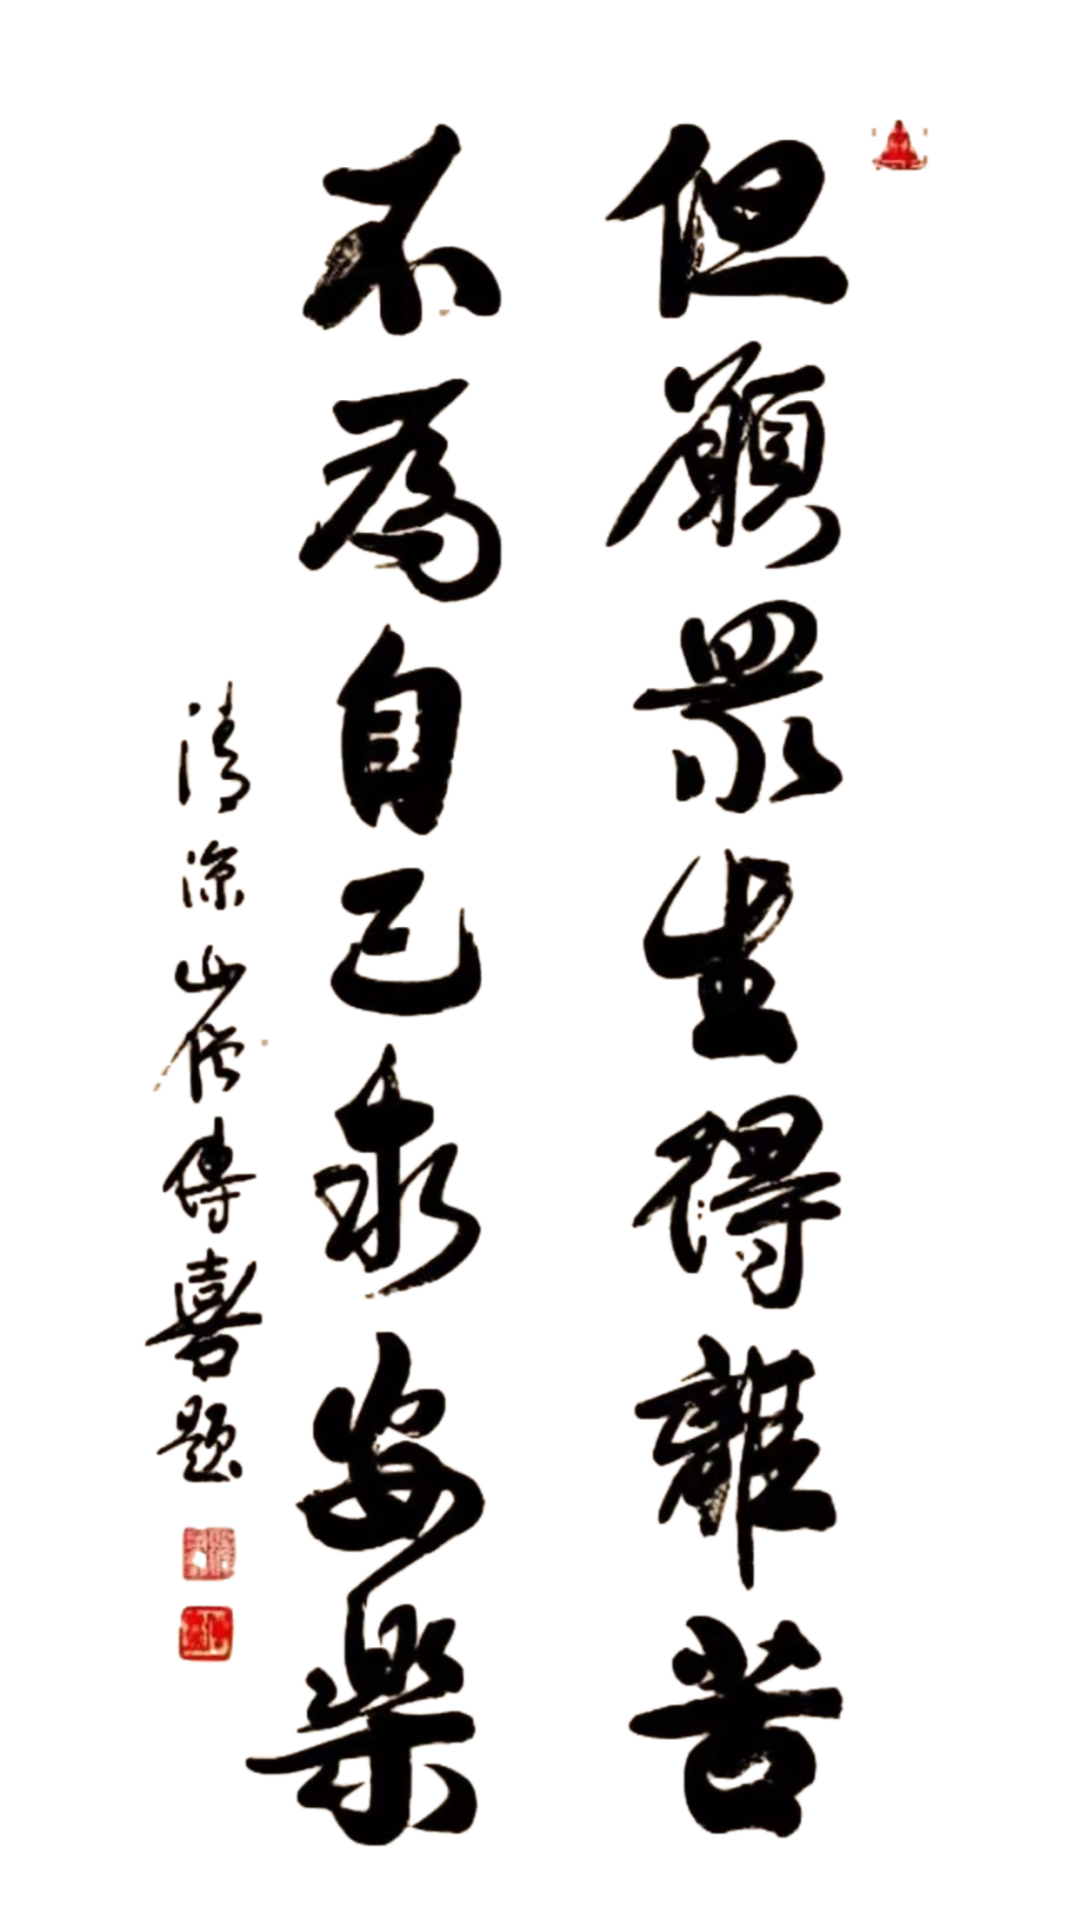 但願眾生得離苦
不為自己求安樂
清涼山僧傳喜题